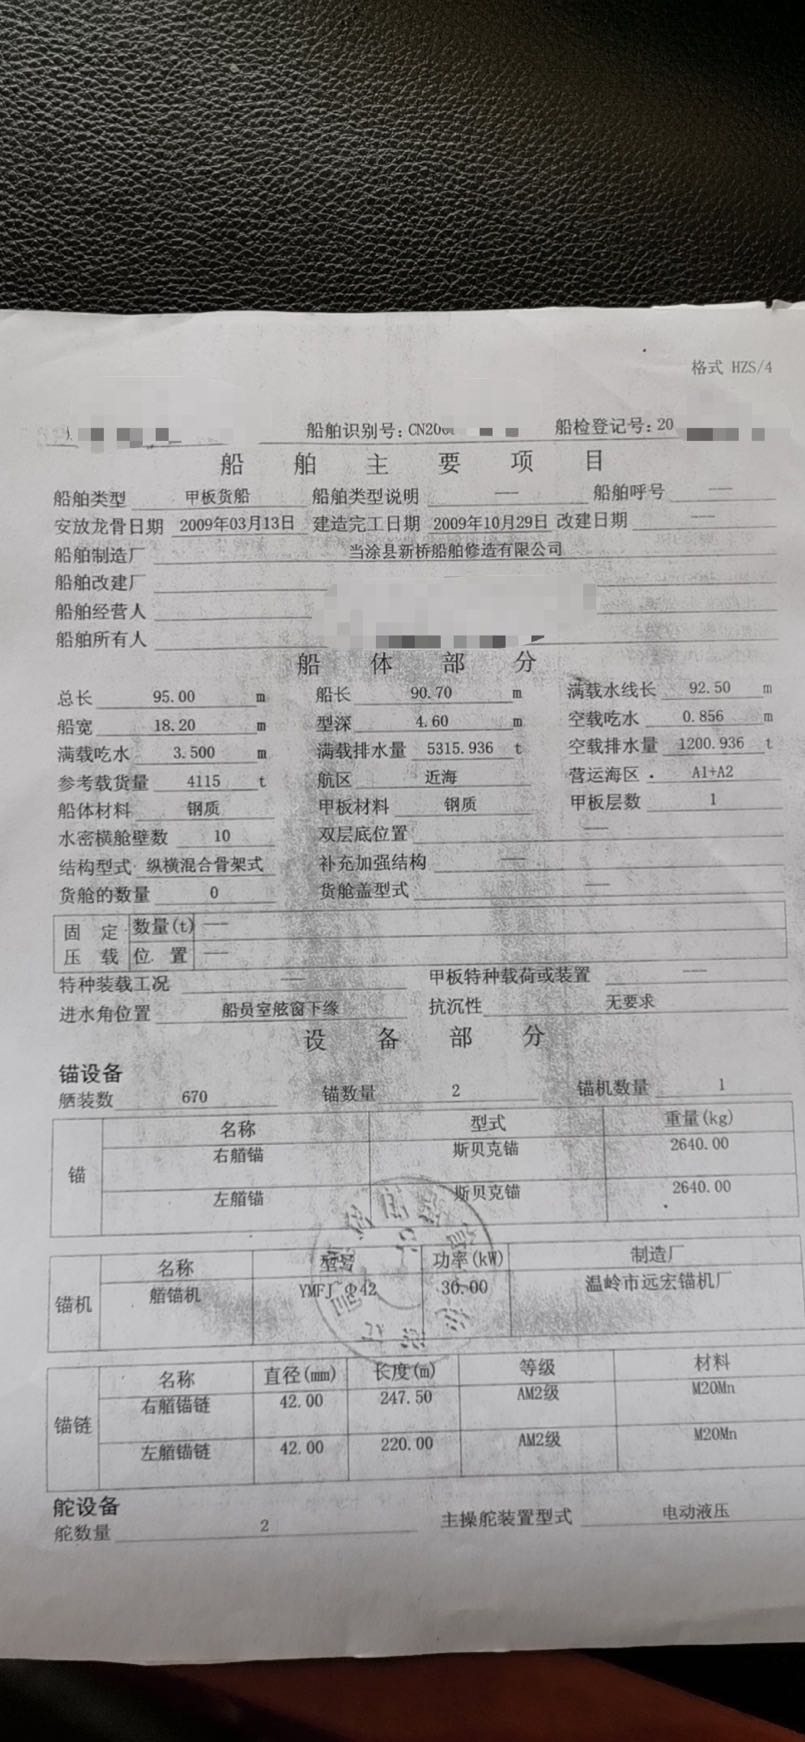 格式 HZS/4
船舶识别号:CN200 船检登记号:20
船舶主要项目
船舶类型 甲板货船 船舶类型说明 — 船舶呼号 —
安放龙骨日期 2009年03月13日 建造完工日期 2009年10月29日 改建日期 —
船舶制造厂 当涂县新桥船舶修造有限公司
船舶改建厂
船舶经营人
船舶所有人
船体部分
总长 95.00 m 船长 90.70 m 满载水线长 92.50 m
船宽 18.20 m 型深 4.60 m 空载吃水 0.856 m
满载吃水 3.500 m 满载排水量 5315.936 t 空载排水量 1200.936 t
参考载货量 4115 t 航区 近海 营运海区 A1+A2
船体材料 钢质 甲板材料 钢质 甲板层数 1
水密横舱壁数 10 双层底位置 —
结构型式 纵横混合骨架式 补充加强结构 —
货舱的数量 0 货舱盖型式 —
固定 数量(t) —
压载 位置 —
特种装载工况 — 甲板特种载荷或装置 —
进水角位置 船员室舷窗下缘 抗沉性 无要求
设备部分
锚设备
舾装数 670 锚数量 2 锚机数量 1
名称 型式 重量(kg)
右艏锚 斯贝克锚 2640.00
锚
左艏锚 斯贝克锚 2640.00
名称 型号 功率(kW) 制造厂
锚机 艏锚机 YMFJ Φ42 30.00 温岭市远宏锚机厂
名称 直径(mm) 长度(m) 等级 材料
右艏锚链 42.00 247.50 AM2级 M20Mn
锚链
左艏锚链 42.00 220.00 AM2级 M20Mn
舵设备
舵数量 2 主操舵装置型式 电动液压